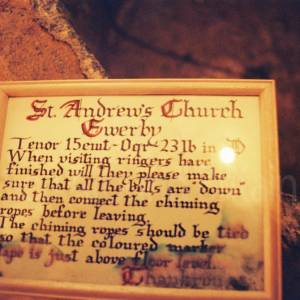 St. Andrew's Church
Ewerby
Tenor 15cwt-0qr-23lb in D
When visiting ringers have
finished will they please make
sure that all the bells are "down"
and then connect the chiming
ropes before leaving.
The chiming ropes should be tied
so that the coloured marker
tape is just above floor level.
Thankyou